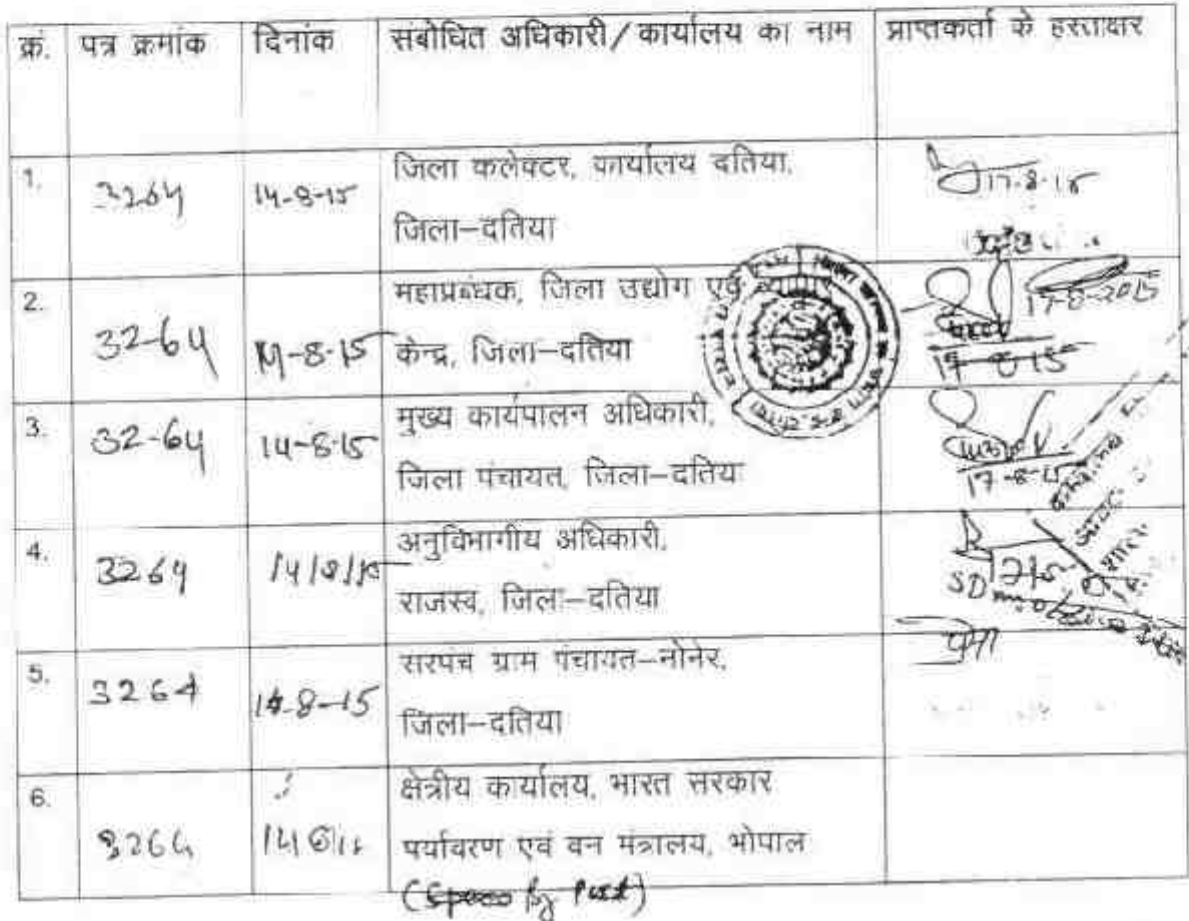 क्रं. पत्र क्रमांक दिनांक संबोधित अधिकारी/कार्यालय का नाम प्राप्तकर्ता के हस्ताक्षर
1. 3264 14-8-15 जिला कलेक्टर, कार्यालय दतिया, 17-8-15
जिला–दतिया
2. 32-64 14-8-15 महाप्रबंधक, जिला उद्योग एवं व्यापार 17-8-2015
केन्द्र, जिला–दतिया 17-8-15
3. 32-64 14-8-15 मुख्य कार्यपालन अधिकारी,
जिला पंचायत, जिला–दतिया 17-8-15
4. 3264 14/8/15 अनुविभागीय अधिकारी,
राजस्व, जिला–दतिया
5. 3264 14-8-15 सरपंच ग्राम पंचायत–नोनेर,
जिला–दतिया
6. 3264 क्षेत्रीय कार्यालय, भारत सरकार
पर्यावरण एवं वन मंत्रालय, भोपाल
By Post)